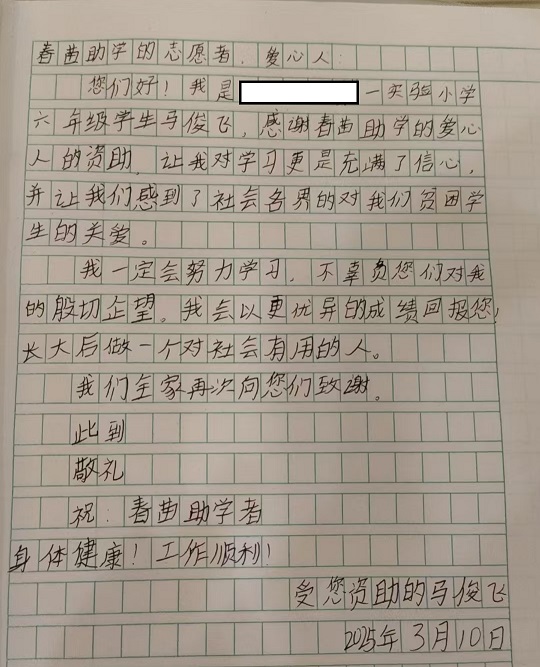 春茜助学的志愿者、爱心人:
您们好!我是 一实验小学
六年级学生马俊飞,感谢春茜助学的爱心
人的资助,让我对学习更是充满了信心,
并让我们感到了社会各界的对我们贫困学
生的关爱。
我一定会努力学习,不辜负您们对我
的殷切企望。我会以更优异的成绩回报您,
长大后做一个对社会有用的人。
我们全家再次向您们致谢。
此到
敬礼
祝:春茜助学者
身体健康!工作顺利!
受您资助的马俊飞
2025年3月10日